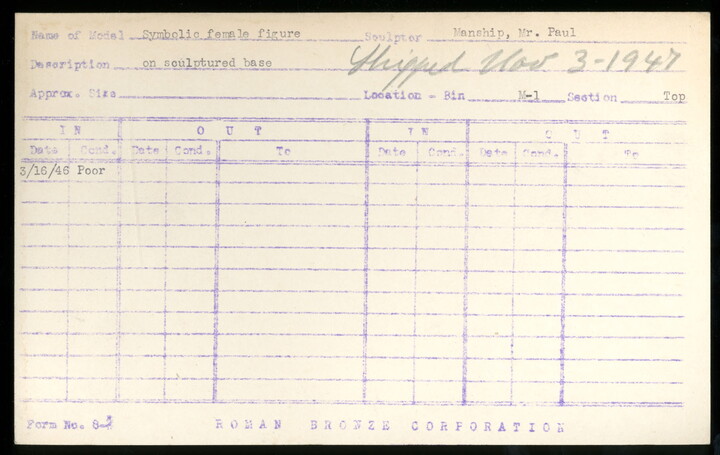 Name of Model Symbolic female figure Sculptor Manship, Mr. Paul
Description on sculptured base Shipped Nov 3-1947
Approx. Size Location - Bin M-1 Section Top
IN OUT IN OUT
Date Cond. Date Cond. To Date Cond. Date Cond. To
3/16/46 Poor
Form No. 8-
ROMAN BRONZE CORPORATION